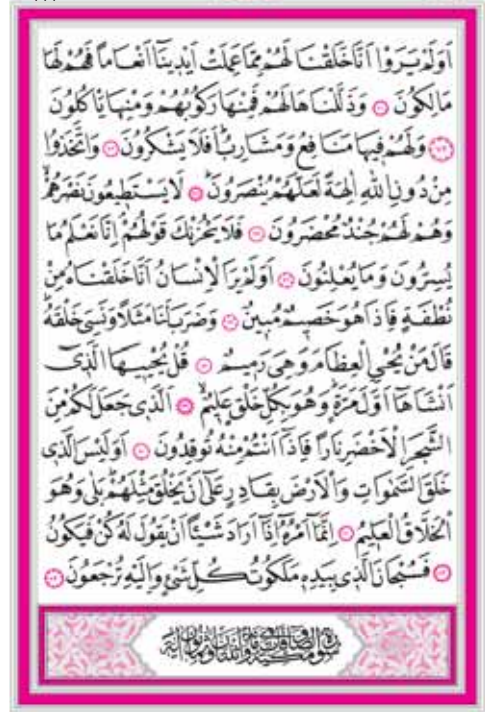 اَوَلَمْ يَرَوْا اَنَّا خَلَقْنَا لَهُمْ مِمَّا عَمِلَتْ اَيْدِينَٓا اَنْعَاماً فَهُمْ لَهَا
مَالِكُونَ ﴿٧١﴾ وَذَلَّلْنَاهَا لَهُمْ فَمِنْهَا رَكُوبُهُمْ وَمِنْهَا يَأْكُلُونَ
﴿٧٢﴾ وَلَهُمْ فِيهَا مَنَافِعُ وَمَشَارِبُۜ اَفَلَا يَشْكُرُونَ ﴿٧٣﴾ وَاتَّخَذُوا
مِنْ دُونِ اللّٰهِ اٰلِهَةً لَعَلَّهُمْ يُنْصَرُونَۜ ﴿٧٤﴾ لَا يَسْتَطِيعُونَ نَصْرَهُمْۙ
وَهُمْ لَهُمْ جُنْدٌ مُحْضَرُونَ ﴿٧٥﴾ فَلَا يَحْزُنْكَ قَوْلُهُمْۢ اِنَّا نَعْلَمُ مَا
يُسِرُّونَ وَمَا يُعْلِنُونَ ﴿٧٦﴾ اَوَلَمْ يَرَ الْاِنْسَانُ اَنَّا خَلَقْنَاهُ مِنْ
نُطْفَةٍ فَاِذَا هُوَ خَصِيمٌ مُبِينٌ ﴿٧٧﴾ وَضَرَبَ لَنَا مَثَلاً وَنَسِيَ خَلْقَهُۜ
قَالَ مَنْ يُحْيِ الْعِظَامَ وَهِيَ رَمِيمٌ ﴿٧٨﴾ قُلْ يُحْيِيهَا الَّذِٓي
اَنْشَاَهَٓا اَوَّلَ مَرَّةٍۜ وَهُوَ بِكُلِّ خَلْقٍ عَلِيمٌۙ ﴿٧٩﴾ اَلَّذِي جَعَلَ لَكُمْ مِنَ
الشَّجَرِ الْاَخْضَرِ نَاراً فَاِذَٓا اَنْتُمْ مِنْهُ تُوقِدُونَ ﴿٨٠﴾ اَوَلَيْسَ الَّذِي
خَلَقَ السَّمٰوَاتِ وَالْاَرْضَ بِقَادِرٍ عَلٰٓى اَنْ يَخْلُقَ مِثْلَهُمْۜ بَلٰى وَهُوَ
الْخَلَّاقُ الْعَلِيمُ ﴿٨١﴾ اِنَّمَٓا اَمْرُهُٓ اِذَٓا اَرَادَ شَيْـٔاً اَنْ يَقُولَ لَهُ كُنْ فَيَكُونُ
﴿٨٢﴾ فَسُبْحَانَ الَّذِي بِيَدِهِ مَلَكُوتُ كُلِّ شَيْءٍ وَاِلَيْهِ تُرْجَعُونَ ﴿٨٣﴾
سورة الصافات مكية وهى مائة واثنتان وثمانون اية